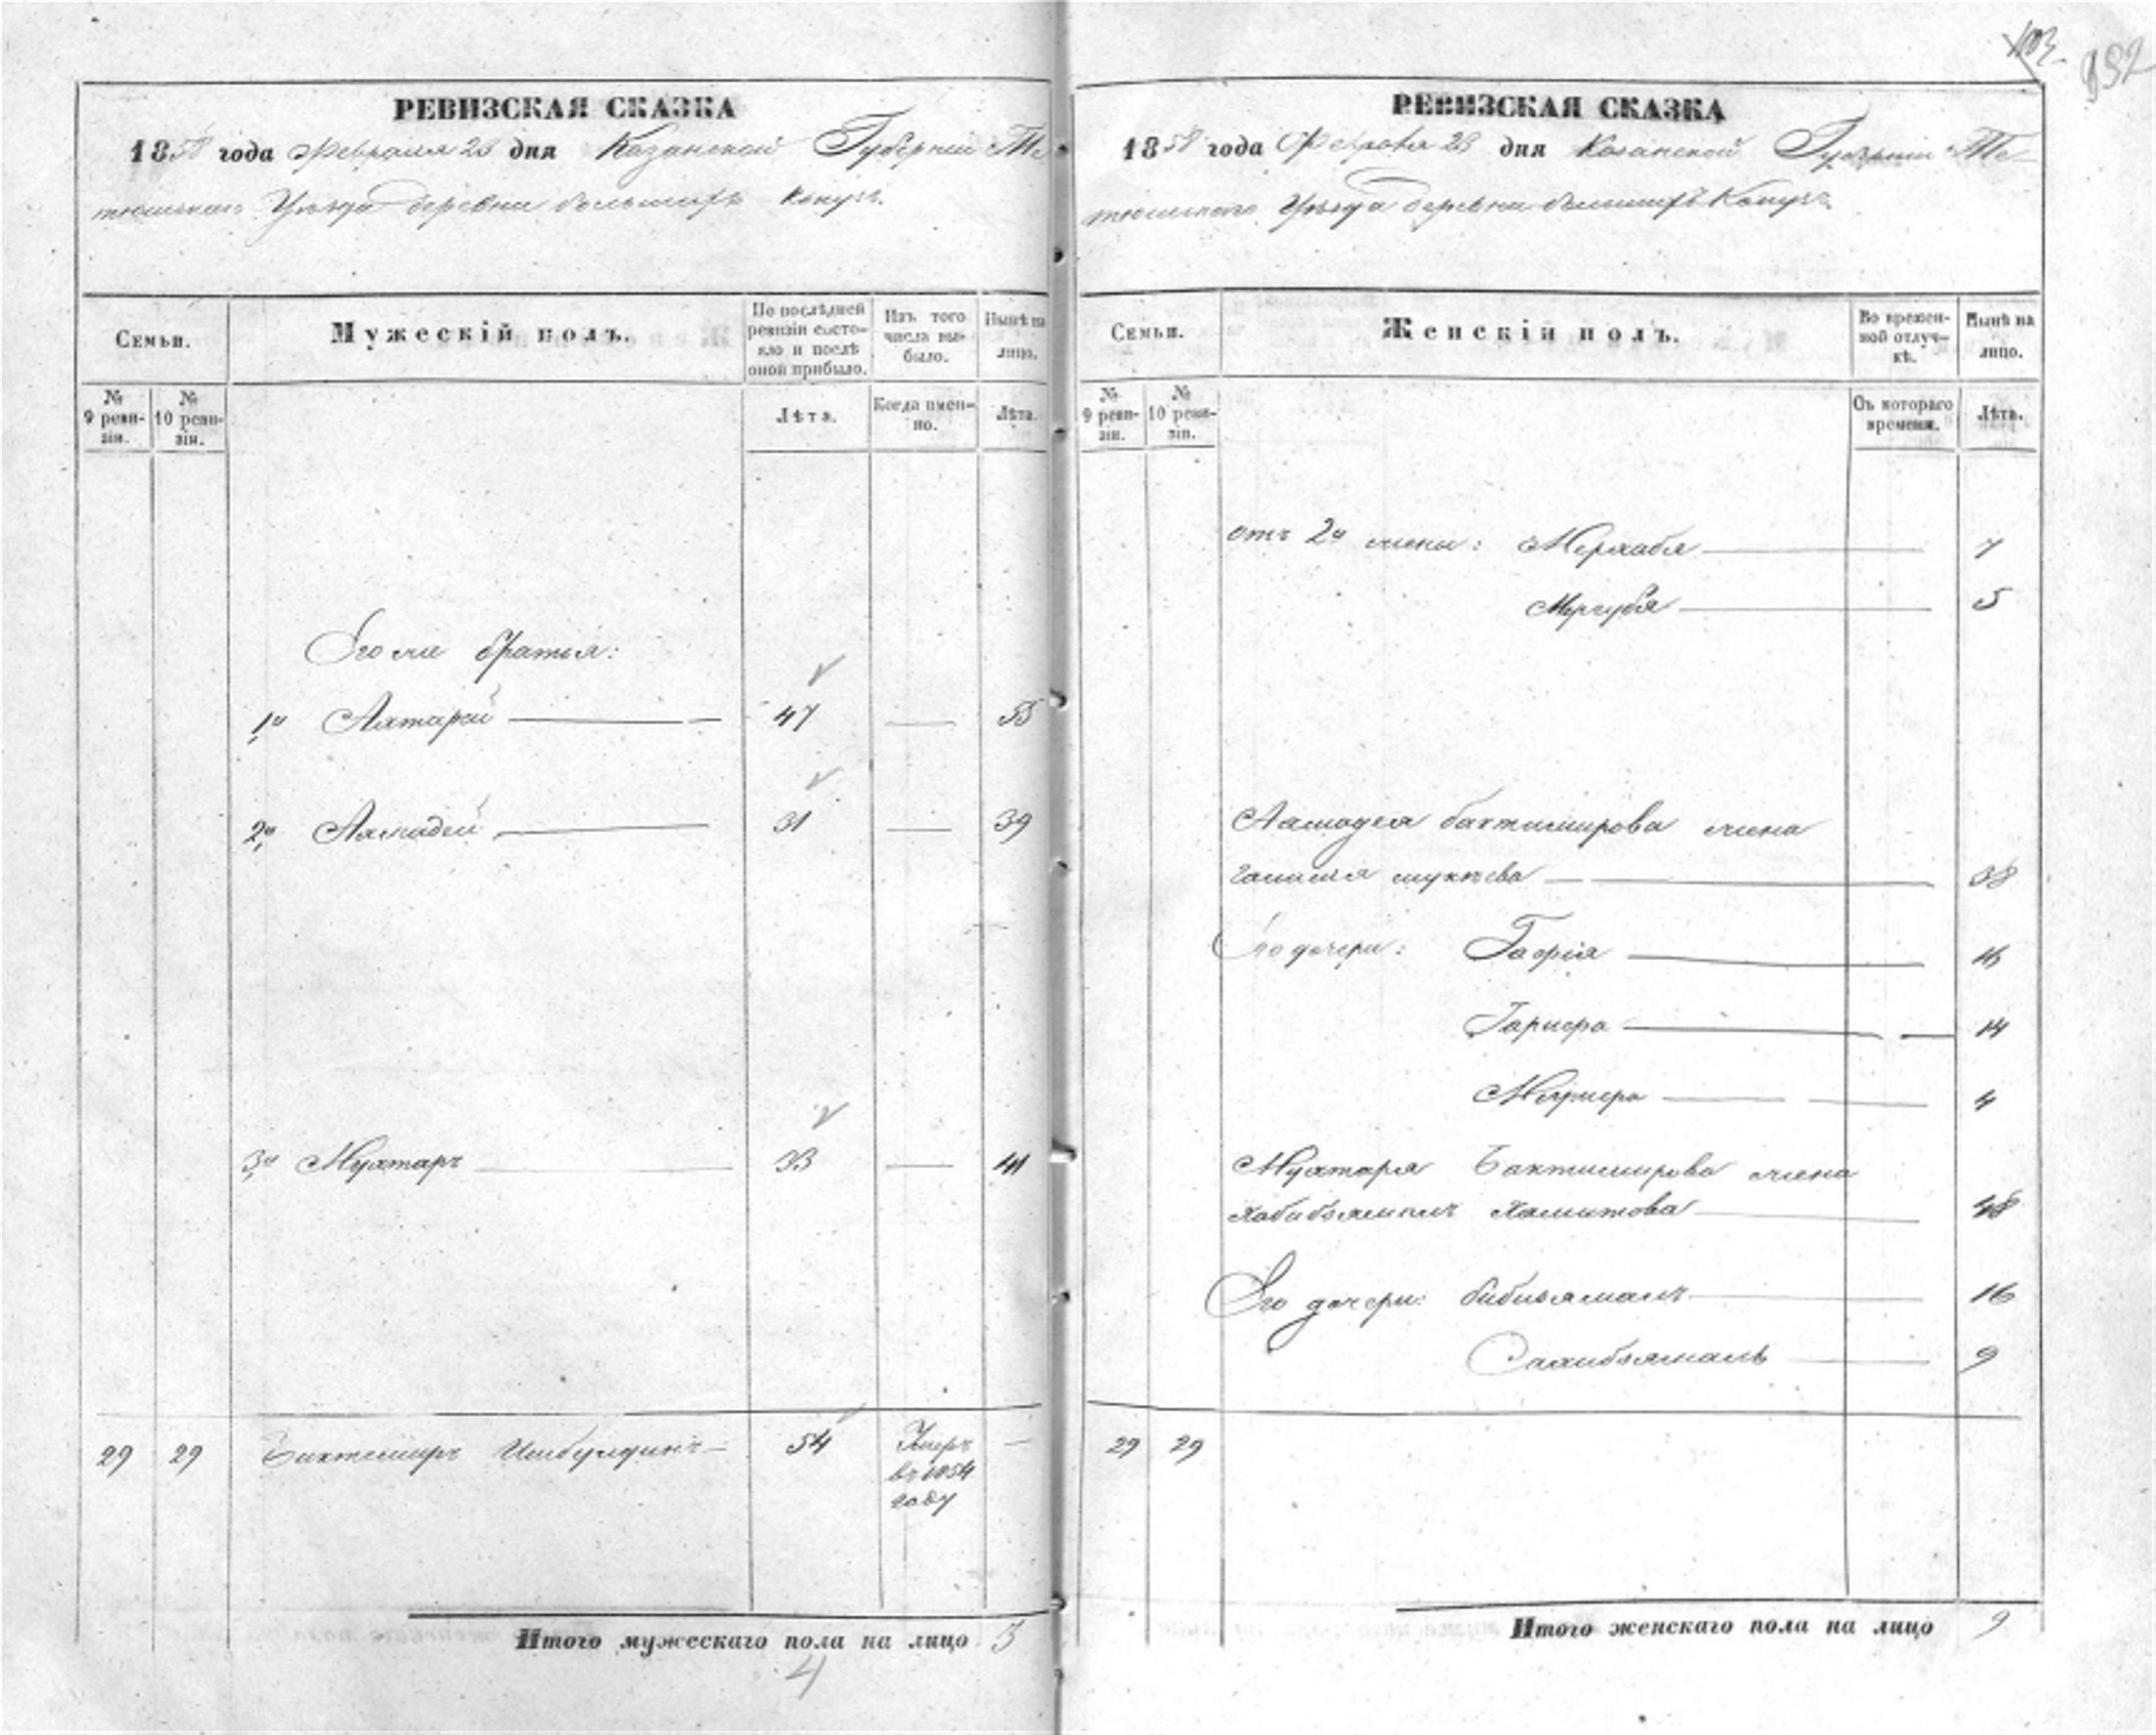 РЕВИЗСКАЯ СКАЗКА
1858 года Февраля 23 дня Казанской Губерніи Те-
тюшскаго Уѣзда деревни большихъ
Семьи.
Мужескій полъ.
По послѣдней ревизіи состо-
яло и послѣ оной прибыло.
Изъ того числа вы-
было.
Нынѣ на лицо.
№ 9 реви-
зіи.
№ 10 реви-
зіи.
Лѣта.
Когда имен-
но.
Лѣта.
Его же братья:
1й Ахтарей 47 — 55
2й Ахмадей 31 — 39
3й Мухтаръ 33 — 41
29 29 Бихтемиръ Ишбулдинъ 54 Умеръ —
въ 1854
году
Итого мужескаго пола на лицо 3
4
103
РЕВИЗСКАЯ СКАЗКА
1858 года Февраля 23 дня Казанской Губерніи Те-
тюшскаго Уѣзда деревни большихъ
Семьи.
Женскій полъ.
Во времен-
ной отлуч-
кѣ.
Нынѣ на лицо.
№ 9 реви-
зіи.
№ 10 реви-
зіи.
Съ котораго времени.
Лѣта.
отъ 2й жены: Мерхабя 7
Мугубя 5
Ахмадея бахтимирова жена
38
Его дочери: Гафія 16
14
4
Мухтаря Бахтимирова жена
Хабибзямалъ Хамитова 48
Его дочери: бибизямалъ 16
Сахибзямалъ 9
29 29
Итого женскаго пола на лицо 9